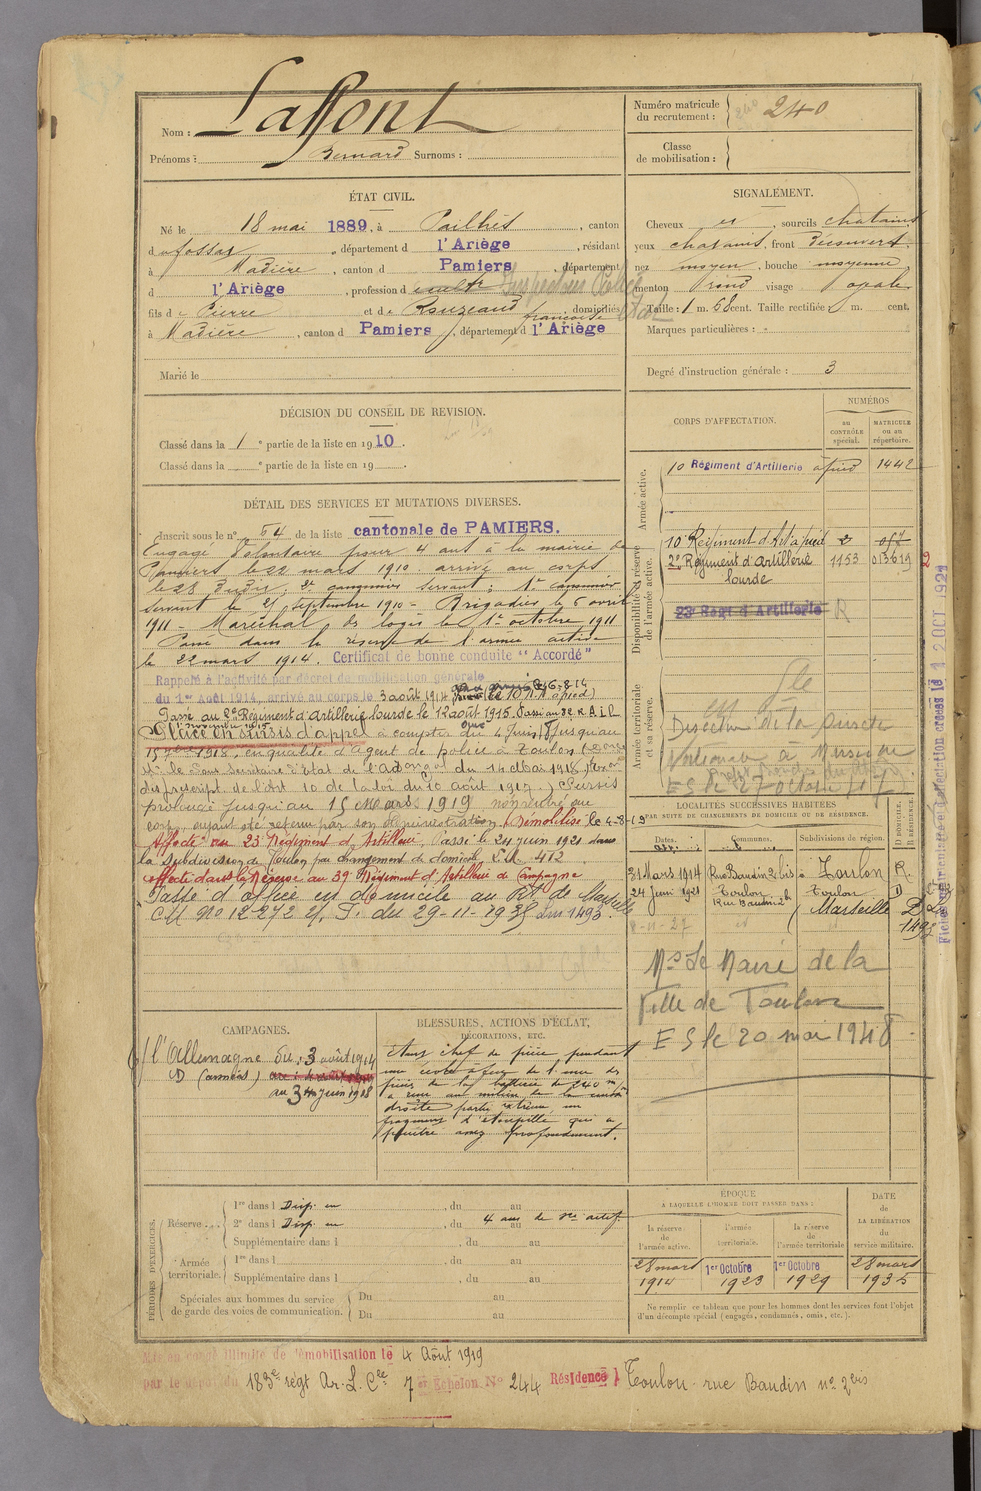 Nom : Laffont
Prénoms : Bernard Surnoms :
Numéro matricule du recrutement : 240
Classe de mobilisation :
ÉTAT CIVIL.
Né le 18 mai 1889, à Pailhés, canton
du Fossat, département d l'Ariège, résidant
à Madière, canton d Pamiers, département
d l'Ariège, profession d cultr Inspecteur Police
fils de Pierre et de Rouzeaud françoise, domiciliés
à Madière, canton d Pamiers, département d l'Ariège
Marié le
SIGNALEMENT.
Cheveux et, sourcils chatains
yeux chatains, front découvert,
nez moyen, bouche moyenne
menton rond visage ovale
Taille : 1 m. 68 cent. Taille rectifiée m. cent.
Marques particulières :
Degré d'instruction générale : 3
DÉCISION DU CONSEIL DE REVISION.
Classé dans la 1 e partie de la liste en 1910.
Classé dans la e partie de la liste en 19
DÉTAIL DES SERVICES ET MUTATIONS DIVERSES.
Inscrit sous le n° 54 de la liste cantonale de PAMIERS.
Engagé Volontaire pour 4 ans à la mairie de
Pamiers le 22 mars 1910 arrivé au corps
le 28 dudit; 2e canonnier servant; 1er canonnier
servant le 21 Septembre 1910 - Brigadier le 5 avril
1911 - Maréchal des logis le 1er octobre 1911
Passé dans la réserve de l'armée active
le 22 mars 1914. Certificat de bonne conduite "Accordé"
Rappelé à l'activité par décret de mobilisation générale
du 1er Août 1914, arrivé au corps le 3 août 1914 (Le 10e R.A. à pied)
Passé au 2e Régiment d'artillerie lourde le 12 août 1915. Passé au 3e R.A.L.
Placé en sursis d'appel à compter du 4 Juin 18 jusqu'au
15 1918, en qualité d'agent de police à Toulon
Mr le Sous Secrétaire d'Etat de l'ad. du 14 Mai 1918
des prescript. de l'Art 10 de la loi du 10 août 1917. Sursis
prolongé jusqu'au 15 Mars 1919 non rentré au
corps, ayant été retenu par son administration. Démobilisé le 4-8-19
Affecté au 23e Régiment d'Artillerie, Passé le 24 juin 1921 dans
la subdivision de Toulon par changement de domicile L.M. 412
Affecté dans la Réserve au 39e Régiment d'Artillerie de Campagne
Passé d'office en domicile au Rt de Marseille
C.M. No 12272 du 29-11-1935 L.M. 1493
CORPS D'AFFECTATION.
NUMÉROS
au CONTRÔLE spécial.
MATRICULE ou au répertoire.
Armée active.
10 Régiment d'Artillerie à pied 1442
Disponibilité et réserve de l'armée active.
10e Régiment d'Art à pied
2e Régiment d'Artillerie lourde 1153 013619
23e Régt d'Artillerie R
Armée territoriale et sa réserve.
Direction de la Sureté
Nationale à
ES le 27 octobre
LOCALITÉS SUCCESSIVES HABITÉES
PAR SUITE DE CHANGEMENTS DE DOMICILE OU DE RÉSIDENCE.
Dates. Communes. Subdivisions de région. D DOMICILE. R RÉSIDENCE.
21 Mars 1914 Rue Baudin 2 bis à Toulon R.
24 Juin 1921 Toulon Rue Baudin 2 b Toulon D
8-11-27 Marseille D L.M. 1493
Mr Le Maire de la
Ville de Toulon
ES le 20 mai 1948
Fiche 12 OCT. 1921
CAMPAGNES.
C/ l'Allemagne du : 3 août 1914
CD (armées)
au 3 Juin 1918
BLESSURES, ACTIONS D'ÉCLAT,
DÉCORATIONS, ETC.
Etant chef de pièce pendant
une école à feux de l'une des
pièces de la batterie de 240 m/m
a reçu au milieu de la cuisse
droite partie interne, un
fragment d'étoupille qui a
pénétré assez profondément.
PÉRIODES D'EXERCICES.
Réserve
1re dans l Disp. en, du au
2e dans l Disp. en, du au 4 ans de sce actif
Supplémentaire dans l, du au
Armée territoriale.
1re dans l, du au
Supplémentaire dans l, du au
Spéciales aux hommes du service de garde des voies de communication.
Du au
Du au
ÉPOQUE
À LAQUELLE L'HOMME DOIT PASSER DANS :
la réserve de l'armée active.
l'armée territoriale.
la réserve de l'armée territoriale
DATE DE LA LIBÉRATION du service militaire.
28 mars 1914
1er Octobre 1923
1er Octobre 1929
28 mars 1935
Ne remplir ce tableau que pour les hommes dont les services font l'objet
d'un décompte spécial (engagés, condamnés, omis, etc.).
Mis en congé illimité de démobilisation le 4 Août 1919
par le dépôt du 183e régt Ar. L. Cie 7 e Echelon No 244 Résidence } Toulon rue Baudin no 2 bis